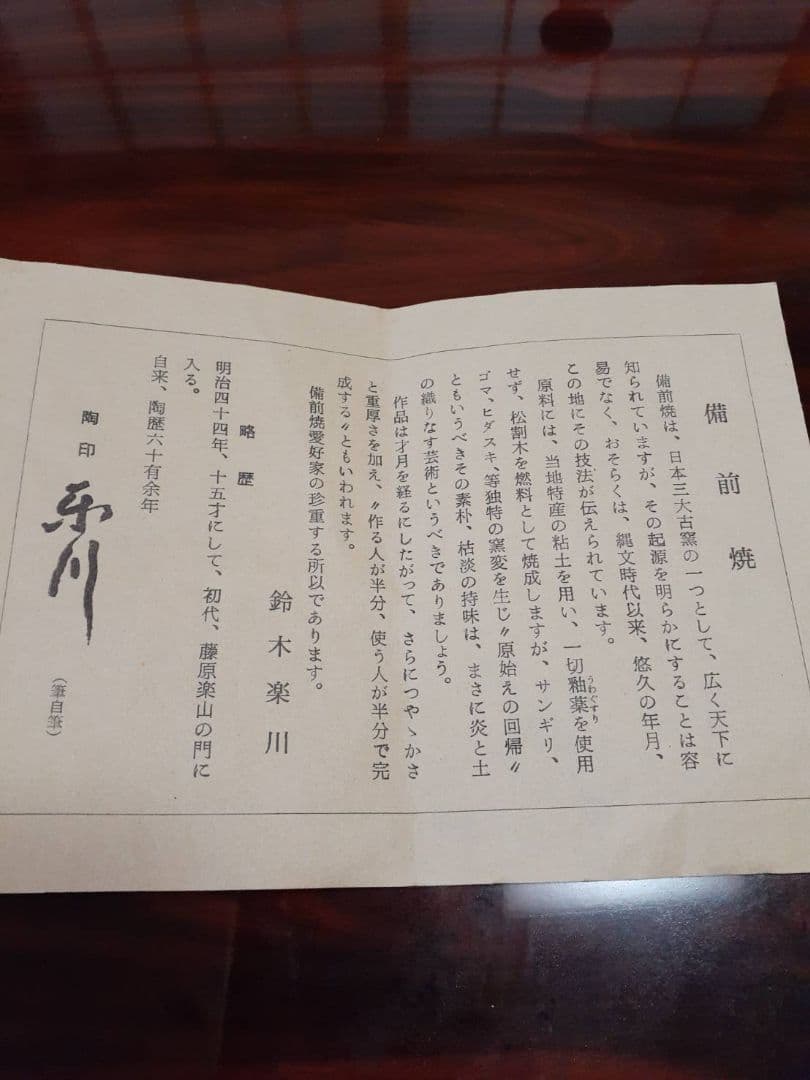 備前焼
備前焼は、日本三大古窯の一つとして、広く天下に
知られていますが、その起源を明らかにすることは容
易でなく、おそらくは、縄文時代以来、悠久の年月、
この地にその技法が伝えられています。
原料には、当地特産の粘土を用い、一切釉薬を使用
うわぐすり
せず、松割木を燃料として焼成しますが、サンギリ、
ゴマ、ヒダスキ、等独特の窯変を生じ〃原始えの回帰〃
ともいうべきその素朴、枯淡の持味は、まさに炎と土
の織りなす芸術というべきでありましょう。
作品は才月を経るにしたがって、さらにつやゝかさ
と重厚さを加え、〃作る人が半分、使う人が半分で完
成する〃ともいわれます。
備前焼愛好家の珍重する所以であります。
鈴木楽川
略歴
明治四十四年、十五才にして、初代、藤原楽山の門に
入る。
自来、陶歴六十有余年
陶印
楽川
(筆自筆)